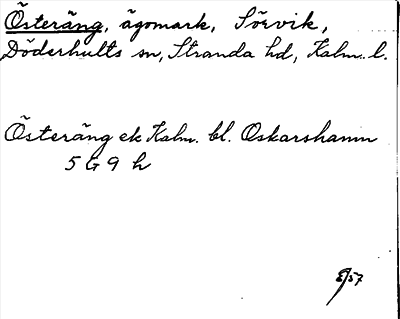 Österäng, ägomark, Sörvik,
Döderhults sn, Stranda hd, Kalm. l.
Österäng ek Kalm. bl. Oskarshamn
5 G 9 h